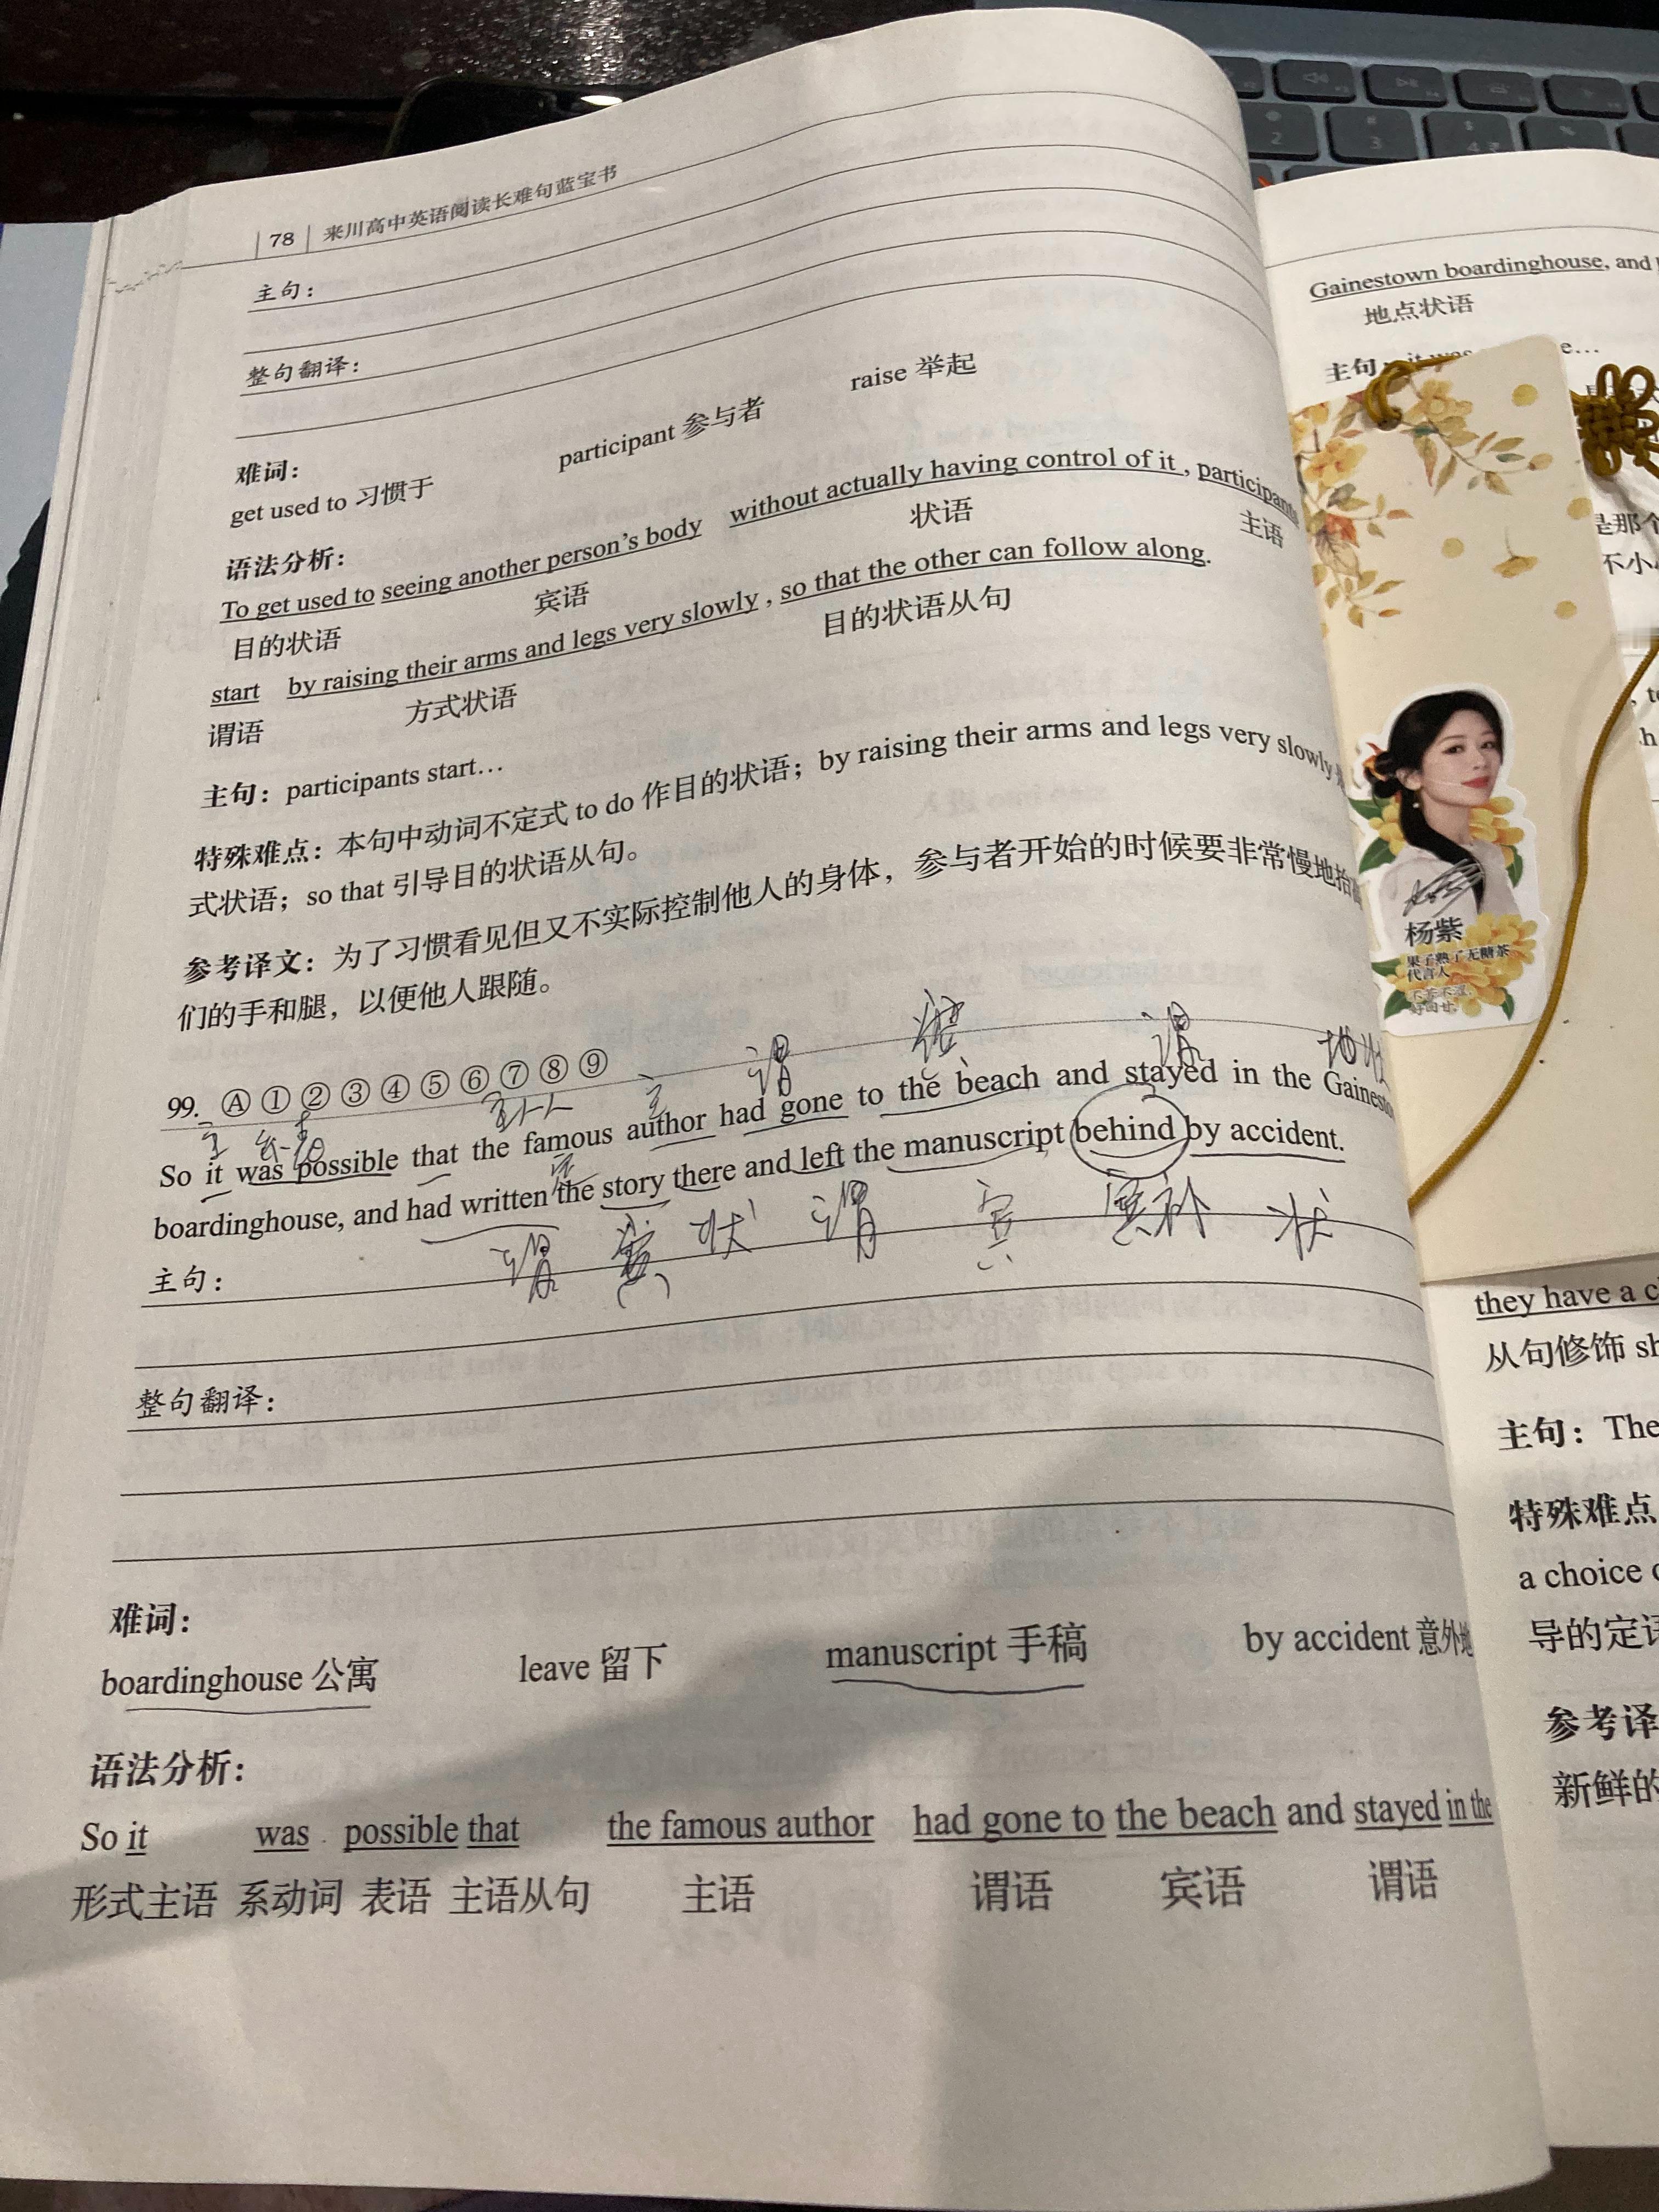 78 来川高中英语阅读长难句蓝宝书
主句：
整句翻译：
难词：
get used to 习惯于 participant 参与者 raise 举起
语法分析：
To get used to seeing another person's body without actually having control of it , participants
目的状语 宾语 状语 主语
start by raising their arms and legs very slowly , so that the other can follow along.
谓语 方式状语 目的状语从句
主句：participants start…
特殊难点：本句中动词不定式 to do 作目的状语；by raising their arms and legs very slowly
式状语；so that 引导目的状语从句。
参考译文：为了习惯看见但又不实际控制他人的身体，参与者开始的时候要非常慢地抬
们的手和腿，以便他人跟随。
99. Ⓐ ① ② ③ ④ ⑤ ⑥ ⑦ ⑧ ⑨
主 谓 谓 地状
So it was possible that the famous author had gone to the beach and stayed in the Gainesto
boardinghouse, and had written the story there and left the manuscript behind by accident.
谓 宾 状 谓 宾 宾补 状
主句：
整句翻译：
难词：
boardinghouse 公寓 leave 留下 manuscript 手稿 by accident 意外地
语法分析：
So it was possible that the famous author had gone to the beach and stayed in the
形式主语 系动词 表语 主语从句 主语 谓语 宾语 谓语
Gainestown boardinghouse, and
地点状语
主句：it was
e…
是那个
不小
杨紫
果子熟了无糖茶
代言人
they have a c
从句修饰 sh
主句：The
特殊难点
a choice
导的定语
参考译
新鲜的